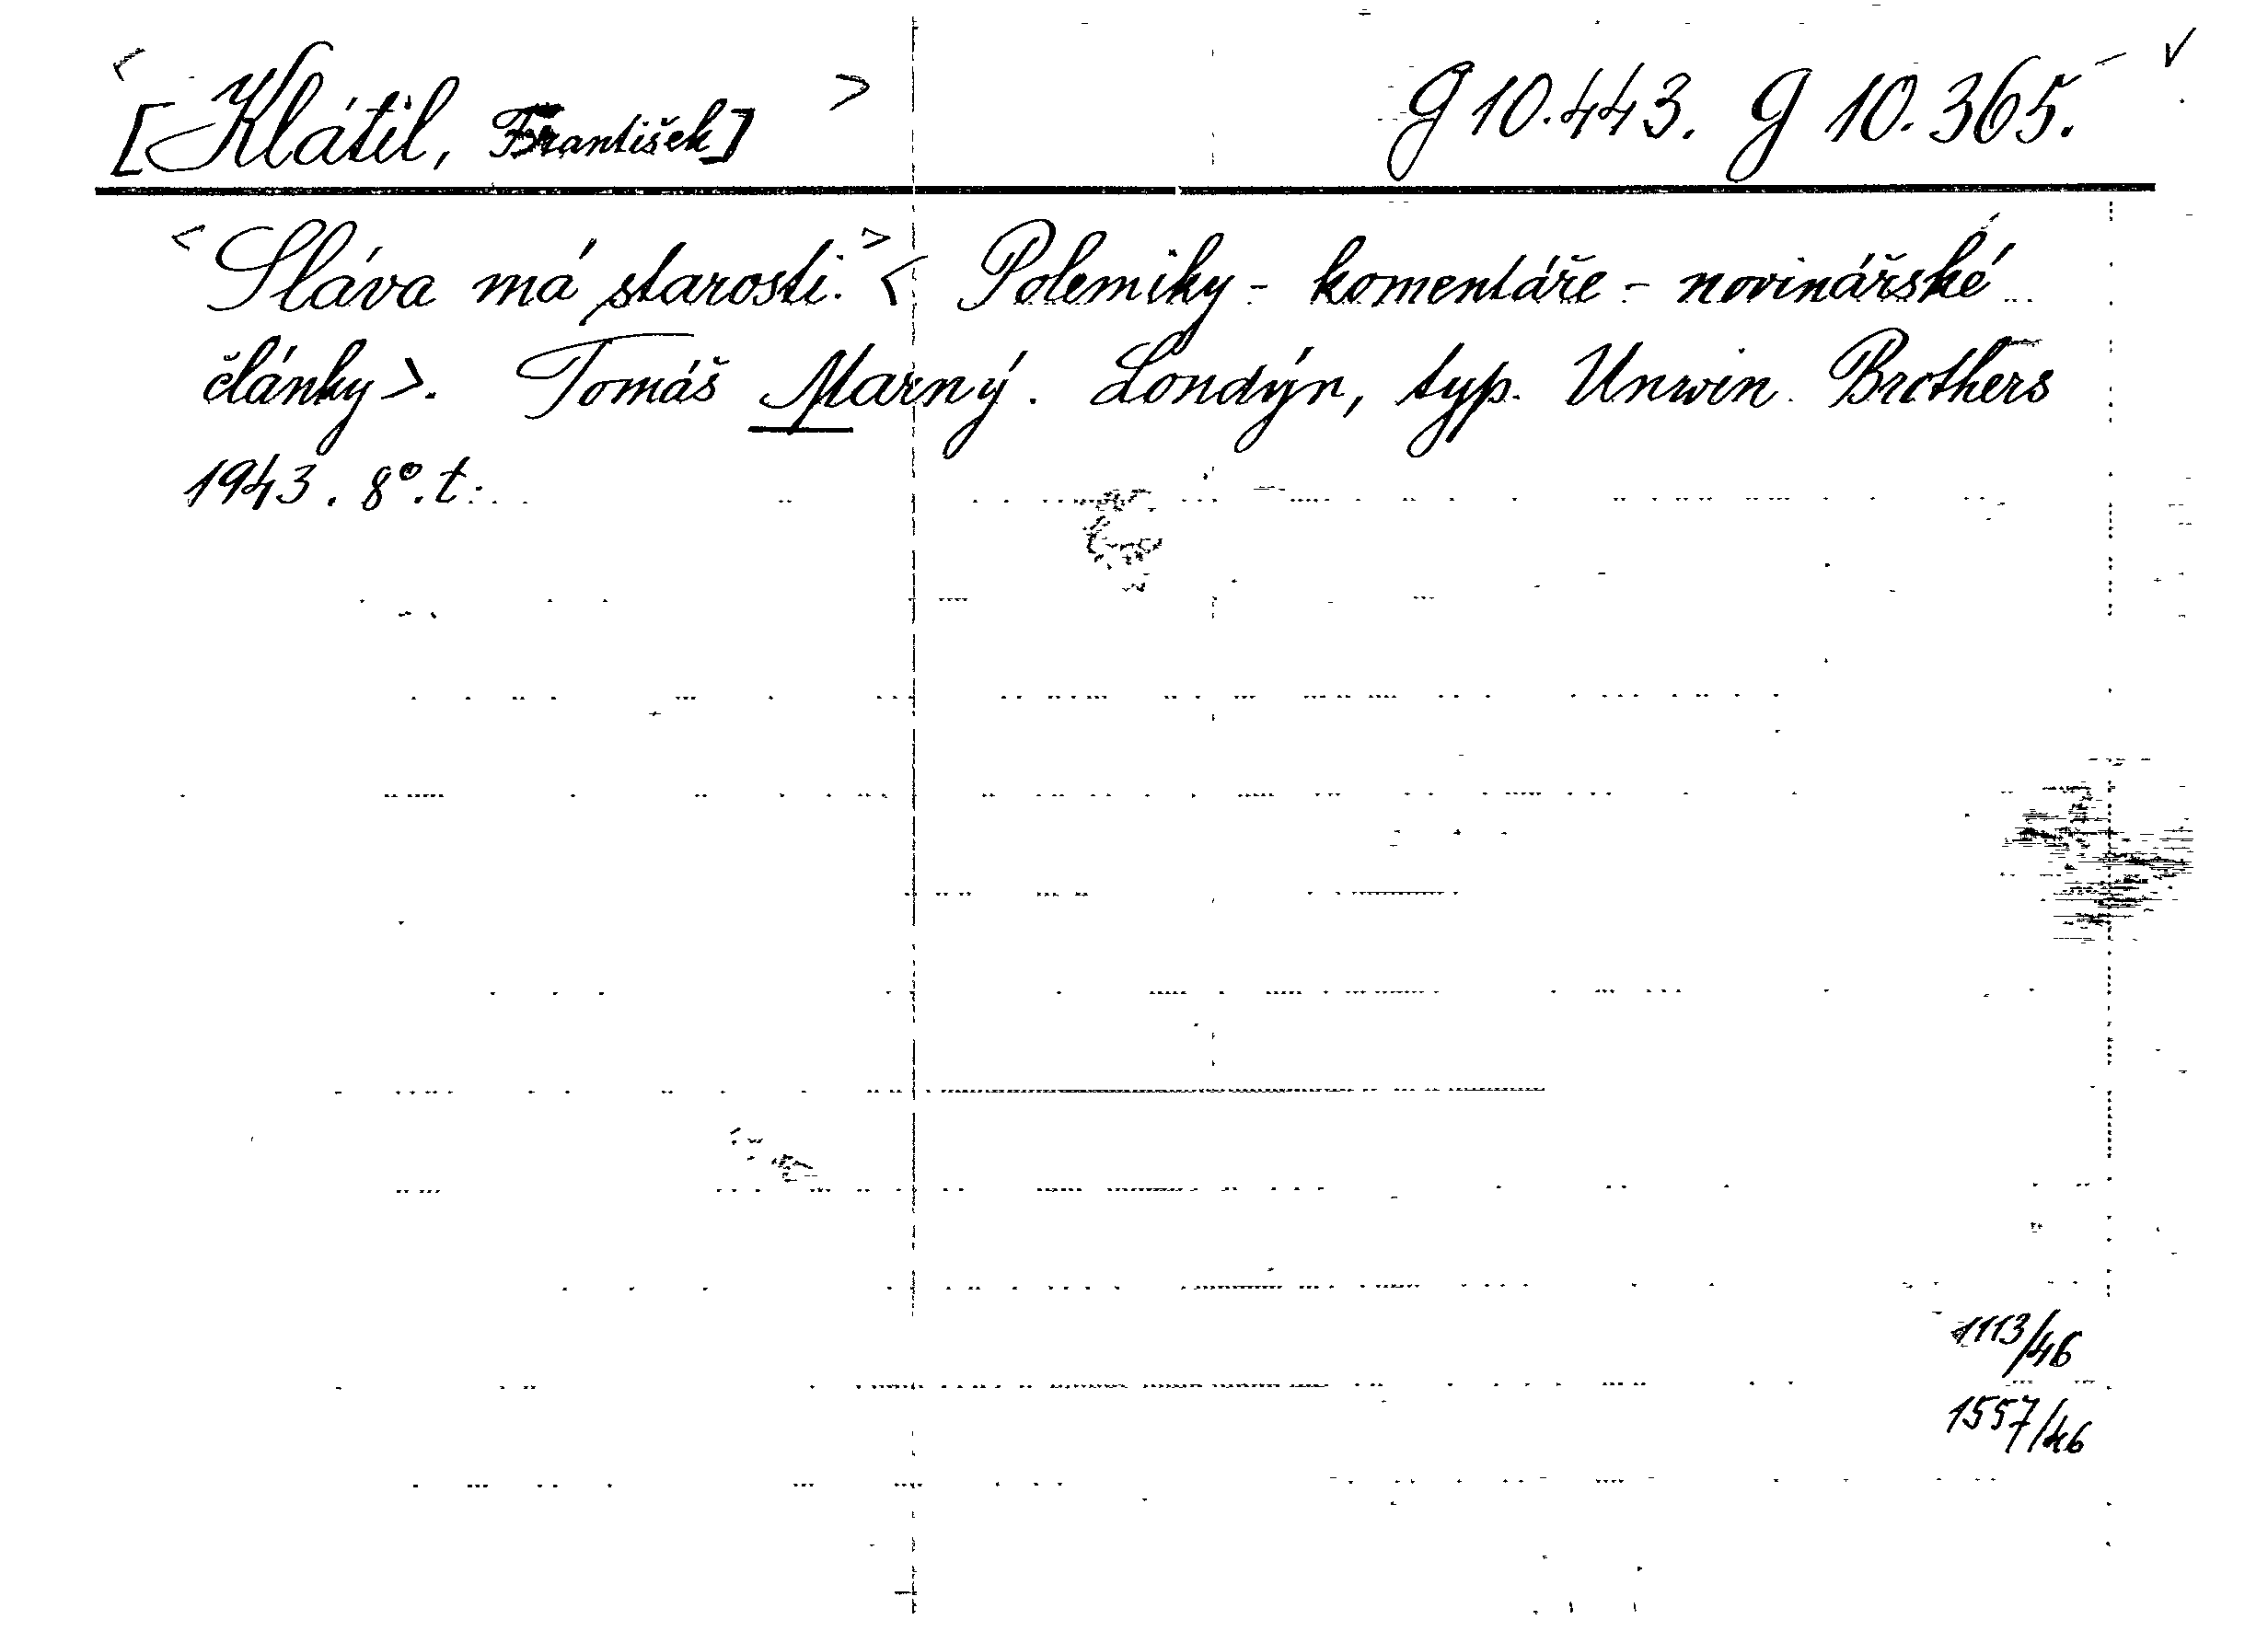 <[Klátil, František]> G 10.443. G 10.365.
<Sláva má starosti.> <Polemiky - komentáře - novinářské
články>. Tomáš Marný. Londýn, typ. Unwin Brothers
1943. 8°. t.
1113/46
1557/46